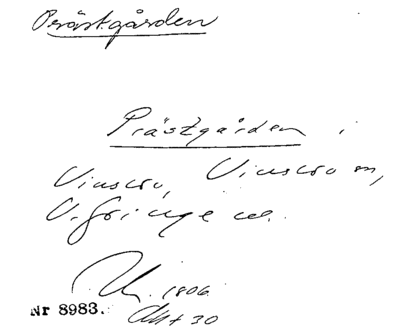 Prästgården
Prästgården i
Vinslöv, Vinslövs sn,
V. Göinge hd.
1806
Nr 8983. Akt 30